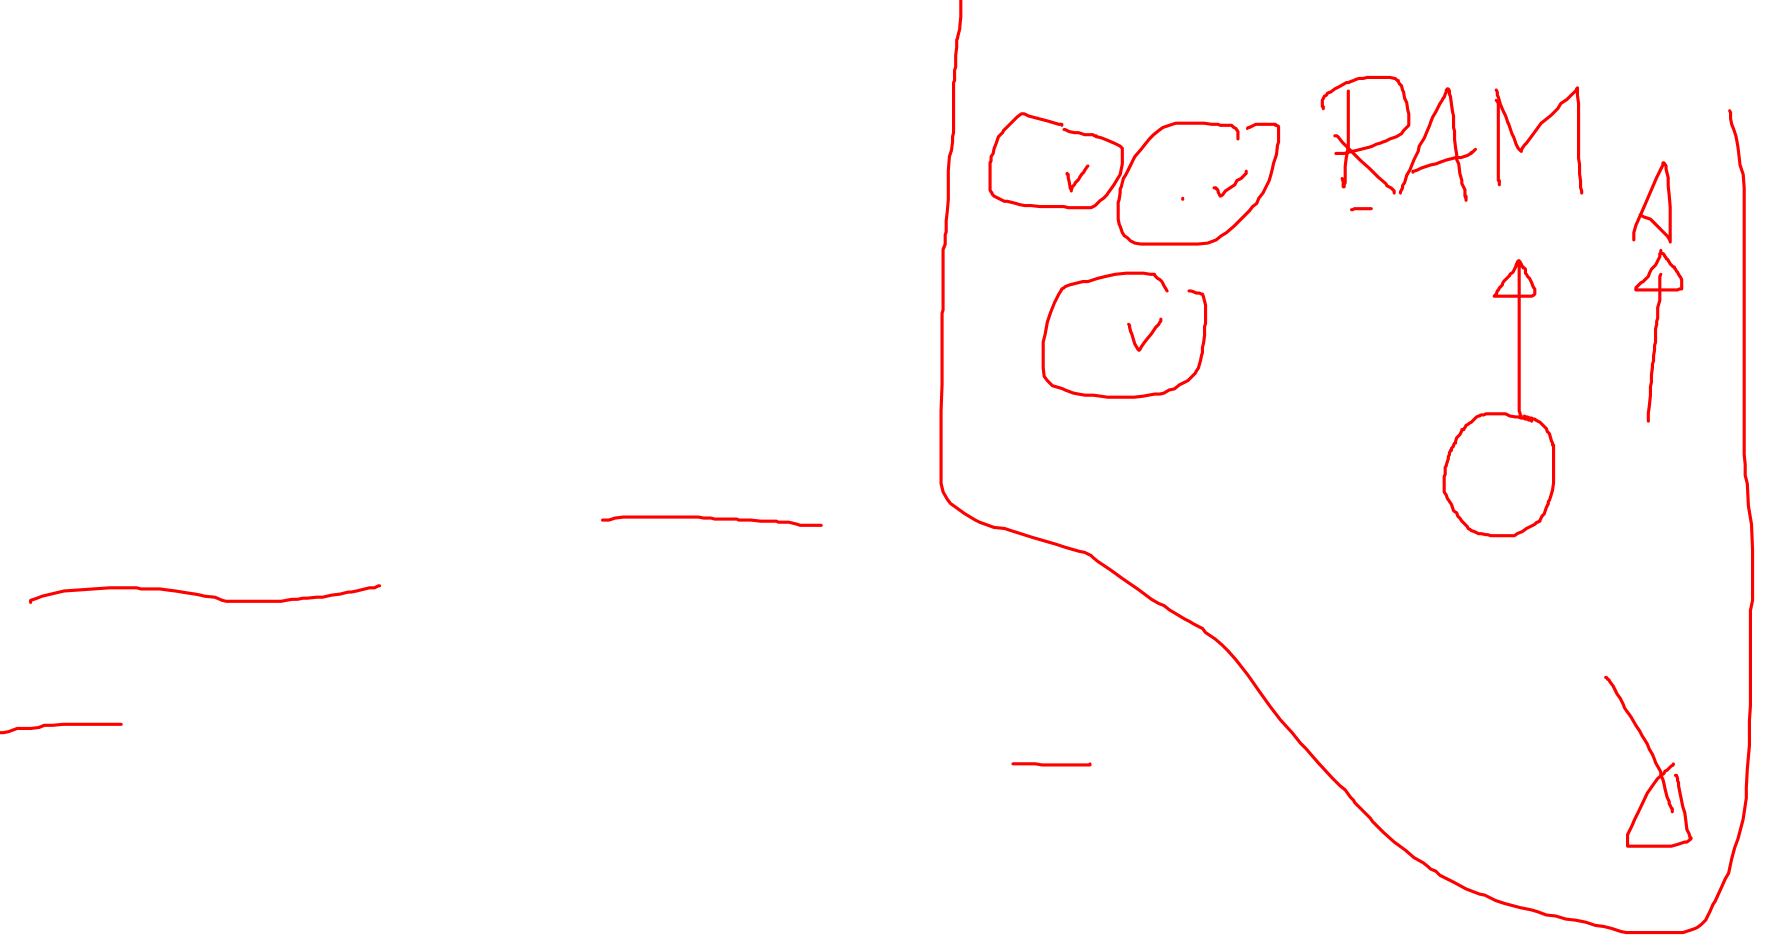 RAM
A